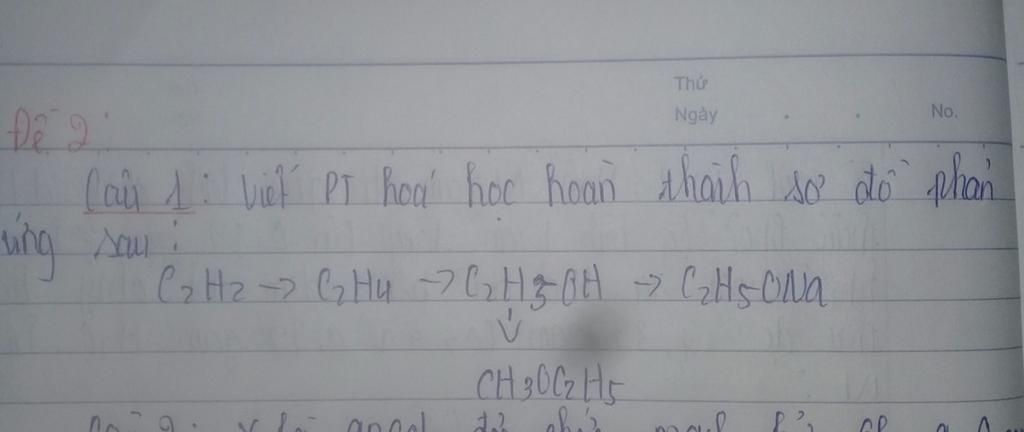 Thứ
Ngày . . No.
Đề 2:
Câu 1: Viết PT hoá học hoàn thành sơ đồ phản
ứng sau:
C2H2 -> C2H4 -> C2H5OH -> C2H5ONa
CH3OC2H5